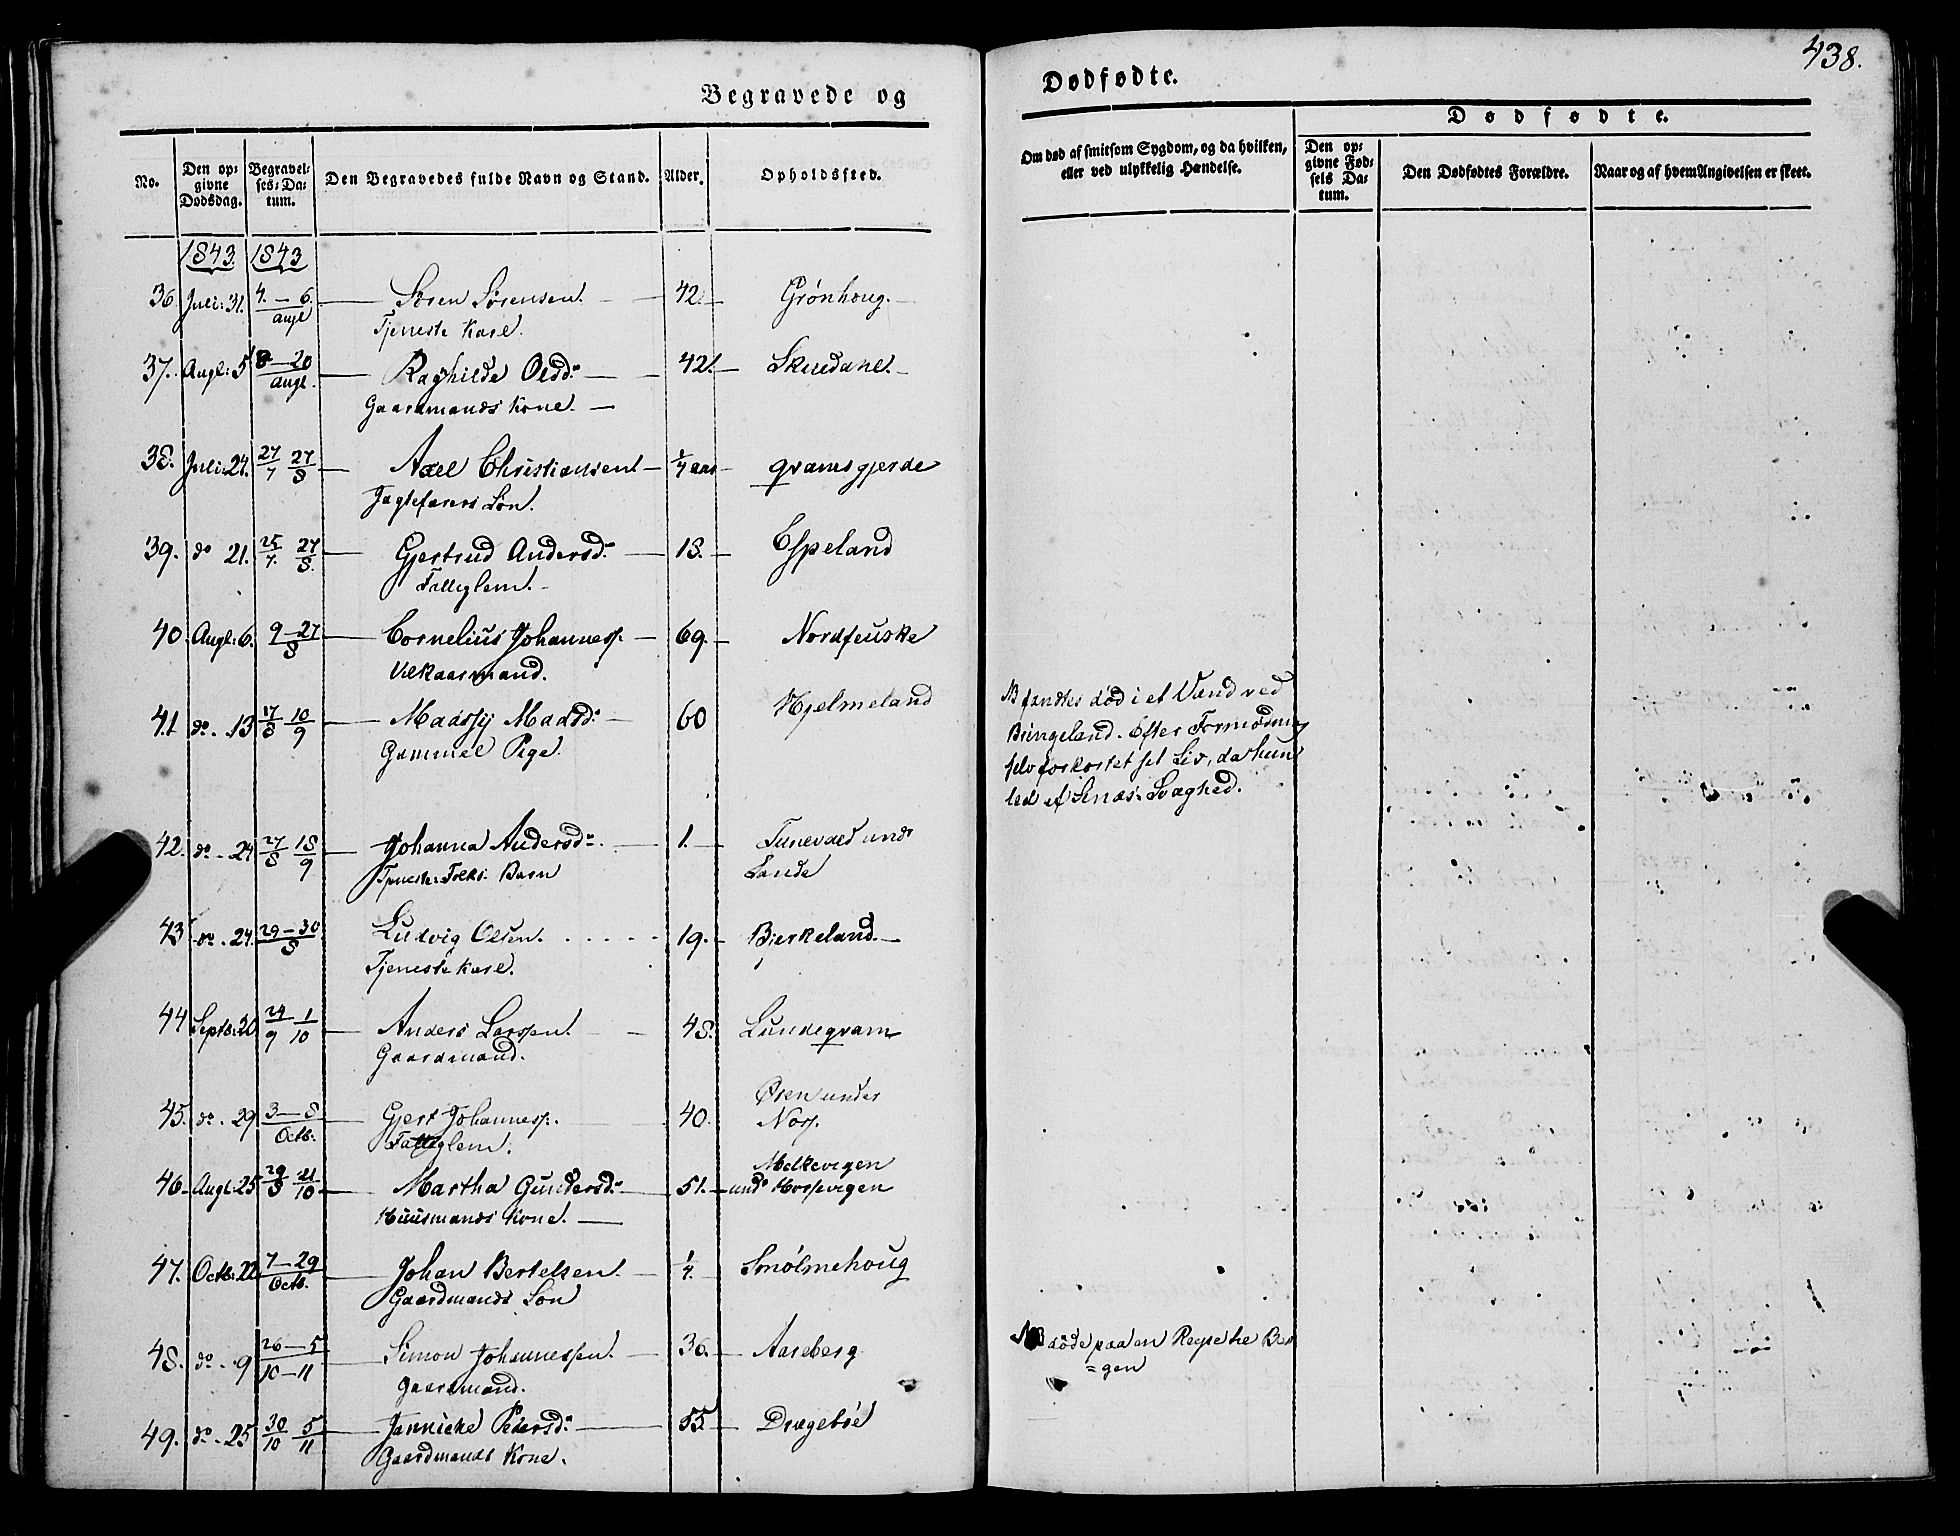 438.
Begravede og
Dødfødte.
No.
Den op-
givne
Dødsdag.
Begravel-
ses-Da-
tum.
Den Begravedes fulde Navn og Stand.
Alder.
Opholdssted.
Om død af smitsom Sygdom, og da hvilken,
eller ved ulykkelig Hændelse.
Dødfødte.
Den op-
givne Fød-
sels Da-
tum.
Den Dødfødtes Forældre.
Naar og af hvem Angivelsen er skeet.
1843. 1843
36. Juli: 31. 4. — 6. Augt Søren Sørensen. 42. Grönhoug.
Tjeneste Karl.
37. Augt: 5 8 — 20 Augt. Raghilde Olsd: 42. Skuedahl.
Gaardmands Kone.
38. Juli: 24. 27/7 27/8 Axel Christiansen 1/4 aar Qvamsgjerde
Søn.
39. do 21. 25/7. 27/8. Gjertrud Andersd: 18. Espeland
Fattiglem.
40. Augt: 6. 9 — 27/8 Cornelius Johanness. 69. Nordfeuske
Vilkaarmand.
41. do. 13 17/8 10/9 Madssij Madsd: 60 Hjelmeland
Gammel Pige.
NB fandtes død i et Vand ved
Büngeland. Efter Formodning
selv forkortet sit Liv, da hun
led af Sinds-Svaghed.
42. do. 24 27/8 18/9 Johanna Andersd: 1. und
Tjeneste Folks Barn Lande
43 do. 24. 29 — 30/8 Ludvig Olsen. 19. Birkeland.
Tjeneste Karl.
44 Septb: 20 24/9 1/10 Anders Larssen. 48. Lundeqvam
Gaardmand.
45. do. 29 3 — 8 Octb. Gjert Johanness. 40. Øren under
Fattiglem. Nors.
46 Augt: 25 29/8 21/10 Martha Gundersd: 51. Melkevigen
Huusmands Kone. und Horsevigen
47. Octb: 22 7 — 29 Octb. Johan Bertelsen. 1/4. Smólmehoug
Gaardmands Søn
48. do. 9 26 — 5 10 — 11 Simon Johannessen. 36. Aareberg
Gaardmand.
NB döde paa en Rejse til Ber
=gen
49. do. 25 30/10 5/11 Jannicke Pedersd: 55 Drageböe
Gaardmands Kone.